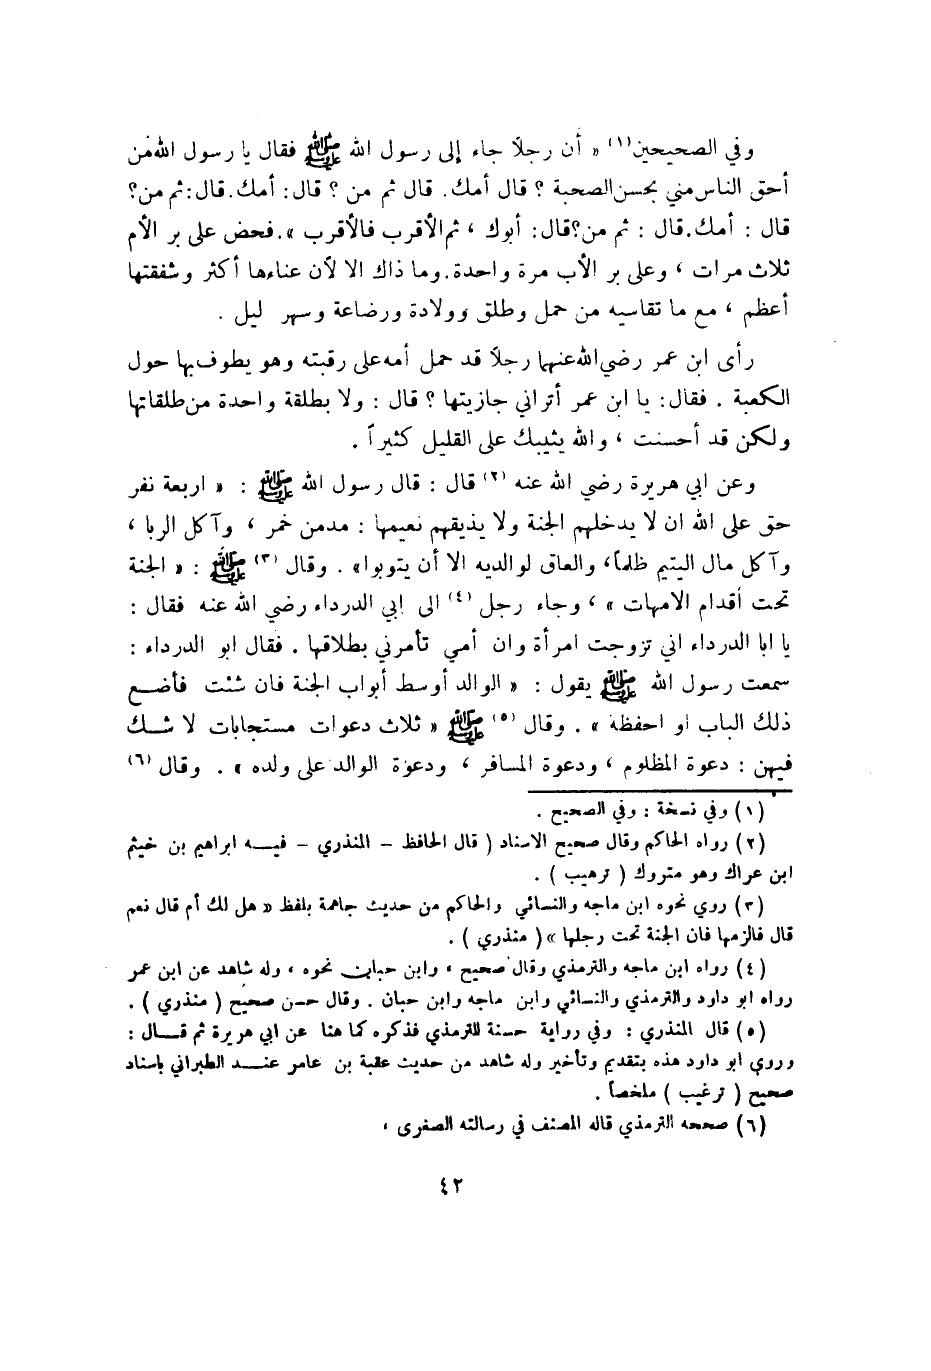 وفي الصحيحين(١) « أن رجلاً جاء إلى رسول الله ﷺ فقال يا رسول الله من
أحق الناس مني بحسن الصحبة ؟ قال أمك. قال ثم من ؟ قال: أمك. قال: ثم من؟
قال : أمك. قال : ثم من؟ قال: أبوك ، ثم الأقرب فالأقرب ». فحض على بر الأم
ثلاث مرات ، وعلى بر الأب مرة واحدة. وما ذاك الا لأن عناءها أكثر وشفقتها
أعظم ، مع ما تقاسيه من حمل وطلق وولادة ورضاعة وسهر ليل .
رأى ابن عمر رضي الله عنهما رجلاً قد حمل أمه على رقبته وهو يطوف بها حول
الكعبة . فقال: يا ابن عمر أتراني جازيتها ؟ قال : ولا بطلقة واحدة من طلقاتها
ولكن قد أحسنت ، والله يثيبك على القليل كثيراً .
وعن ابي هريرة رضي الله عنه (٢) قال : قال رسول الله ﷺ : « اربعة نفر
حق على الله ان لا يدخلهم الجنة ولا يذيقهم نعيمها : مدمن خمر ، وآكل الربا ،
وآكل مال اليتيم ظلماً، والعاق لوالديه الا أن يتوبوا» . وقال (٣) ﷺ : « الجنة
تحت أقدام الامهات » ، وجاء رجل (٤) الى ابي الدرداء رضي الله عنه فقال :
يا ابا الدرداء اني تزوجت امرأة وان أمي تأمرني بطلاقها . فقال ابو الدرداء :
سمعت رسول الله ﷺ يقول : « الوالد أوسط أبواب الجنة فان شئت فأضع
ذلك الباب او احفظه » . وقال (٥) ﷺ « ثلاث دعوات مستجابات لا شك
فيهن : دعوة المظلوم ، ودعوة المسافر ، ودعوة الوالد على ولده » . وقال (٦)
(١) وفي نسخة : وفي الصحيح .
(٢) رواه الحاكم وقال صحيح الاسناد ( قال الحافظ – المنذري – فيه ابراهيم بن خيثم
ابن عراك وهو متروك ( ترهيب ) .
(٣) روي نحوه ابن ماجه والنسائي والحاكم من حديث جاهمة بلفظ « هل لك أم قال نعم
قال فالزمها فان الجنة تحت رجلها » ( منذري ) .
(٤) رواه ابن ماجه والترمذي وقال صحيح ، وابن حبان نحوه ، وله شاهد عن ابن عمر
رواه ابو داود والترمذي والنسائي وابن ماجه وابن حبان . وقال حسن صحيح ( منذري ) .
(٥) قال المنذري : وفي رواية حسنة للترمذي فذكره كما هنا عن ابي هريرة ثم قال :
وروي ابو داود هذه بتقديم وتأخير وله شاهد من حديث عقبة بن عامر عند الطبراني باسناد
صحيح ( ترغيب ) ملخصاً .
(٦) صححه الترمذي قاله المصنف في رسالته الصغرى ،
٤٢